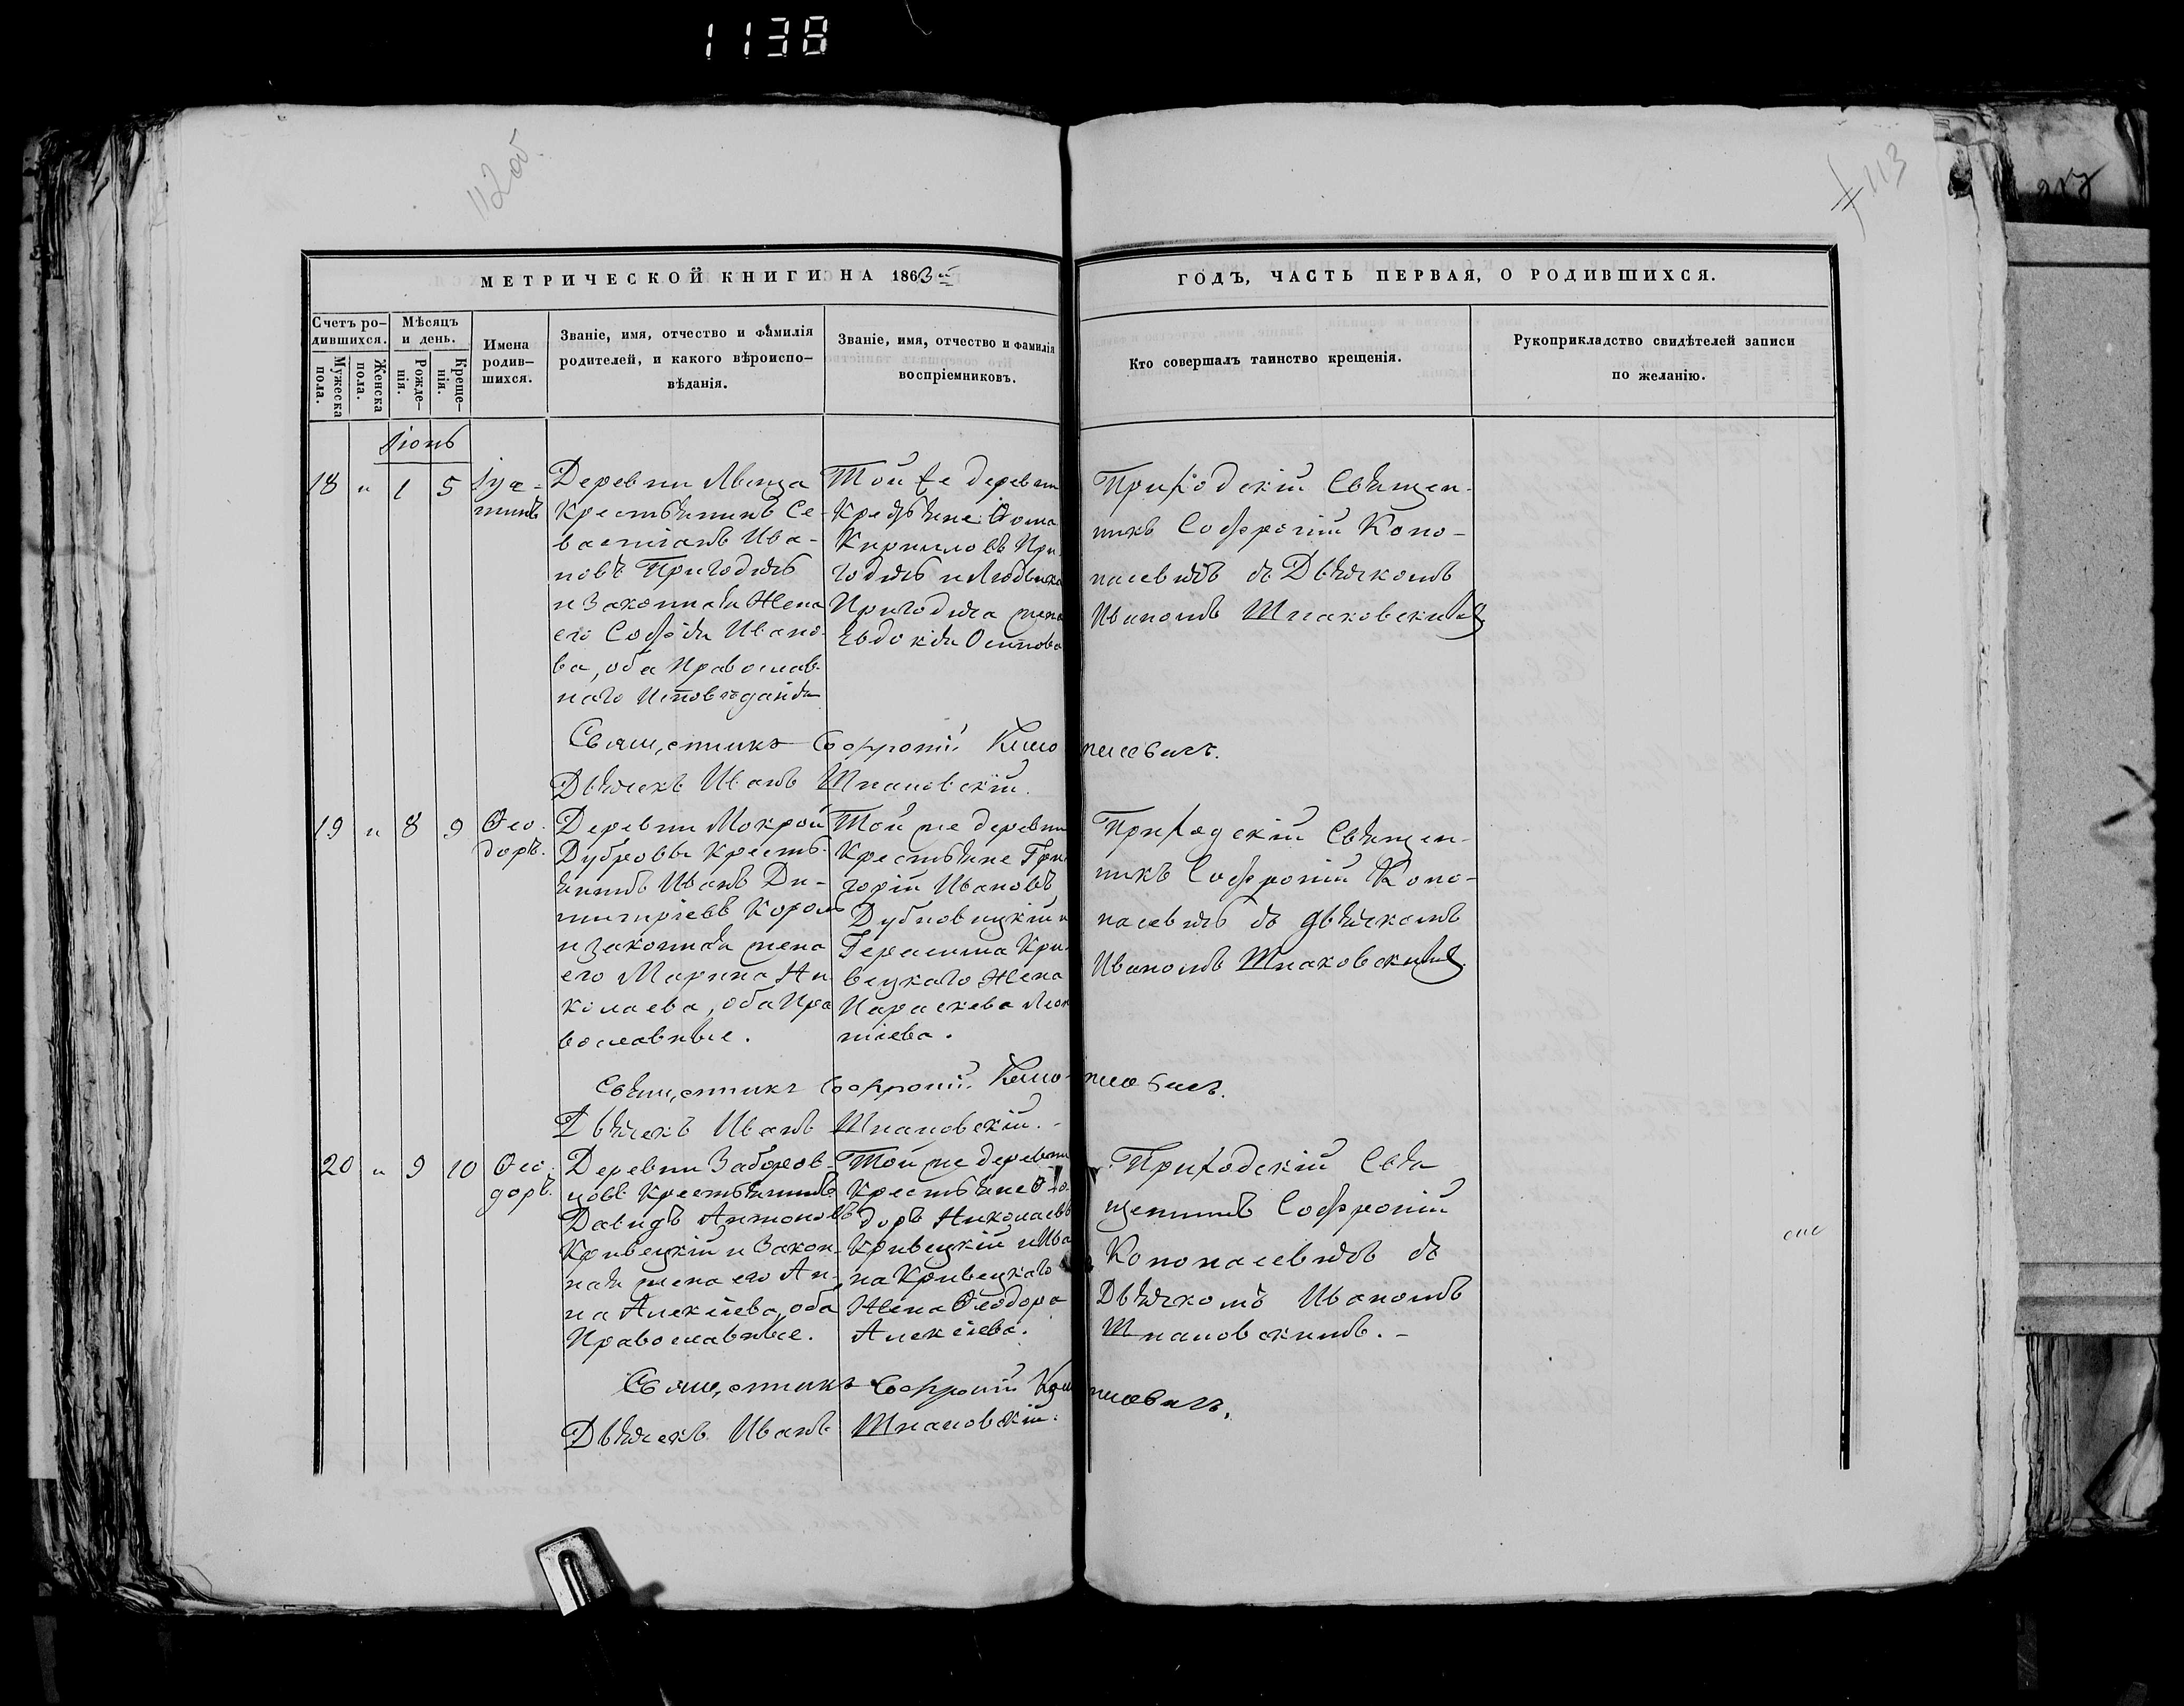 1138
112об
113
МЕТРИЧЕСКОЙ КНИГИ НА 1863й
ГОДЪ, ЧАСТЬ ПЕРВАЯ, О РОДИВШИХСЯ.
Счетъ ро-
дившихся.
Мужеска
пола.
Женска
пола.
Мѣсяцъ
и день.
Рожде-
нія.
Креще-
нія.
Имена
родив-
шихся.
Званіе, имя, отчество и фамилія
родителей, и какого вѣроиспо-
вѣданія.
Званіе, имя, отчество и фамилія
воспріемниковъ.
Кто совершалъ таинство крещенія.
Рукоприкладство свидѣтелей записи
по желанію.
Іюнь
18 " 1 5
Іус-
тинъ
Деревни
Крестьянинъ Се-
вастіанъ Ива-
новъ Пригодичъ
и Законная Жена
его Софія Ивано-
ва, оба Православ-
наго Исповѣданія
Той же деревни
Крестьяне Ѳома
Кирилловъ При-
годичъ и
Пригодича жена
Евдокія Осипова
Приходскій Священ-
никъ Софроній Коно-
пасевичъ съ Дьячкомъ
Иваномъ Шпаковскимъ
Священникъ Софроній Коно-
пасевичъ.
Дьячекъ Иванъ Шпаковскій.
19 " 8 9
Ѳео-
доръ.
Деревни Мокрой
Дубровы Кресть-
янинъ Иванъ Ди-
митріевъ Король
и законная жена
его Марина Ни
колаева, оба Пра
вославные.
Той же деревни
Крестьяне Гри
горій Ивановъ
Дубновицкій и
Герасима Кри-
вецкаго Жена
Параскева Леон
тіева.
Приходскій Священ-
никъ Софроній Коно-
пасевичъ съ дьячкомъ
Иваномъ Шпаковскимъ.
Священникъ Софроній Коно-
пасевичъ.
Дьячекъ Иванъ Шпаковскій.-
20 " 9 10
Ѳео-
доръ.
Деревни
Крестьянинъ
Давидъ Антоновъ
Кривецкій и Закон-
ная жена его Ан-
на Алексіева, оба
Православные.
Той же деревни
Крестьяне Ѳео-
доръ Николаевъ
Кривецкій и Ива
на Кривецкаго
Жена Ѳеодора
Алексіева.
Приходскій Свя
щенникъ Софроній
Конопасевичъ съ
Дьячкомъ Иваномъ
Шпаковскимъ.-
Священникъ Софроній Коно
пасевичъ.
Дьячекъ Иванъ Шпаковскій.